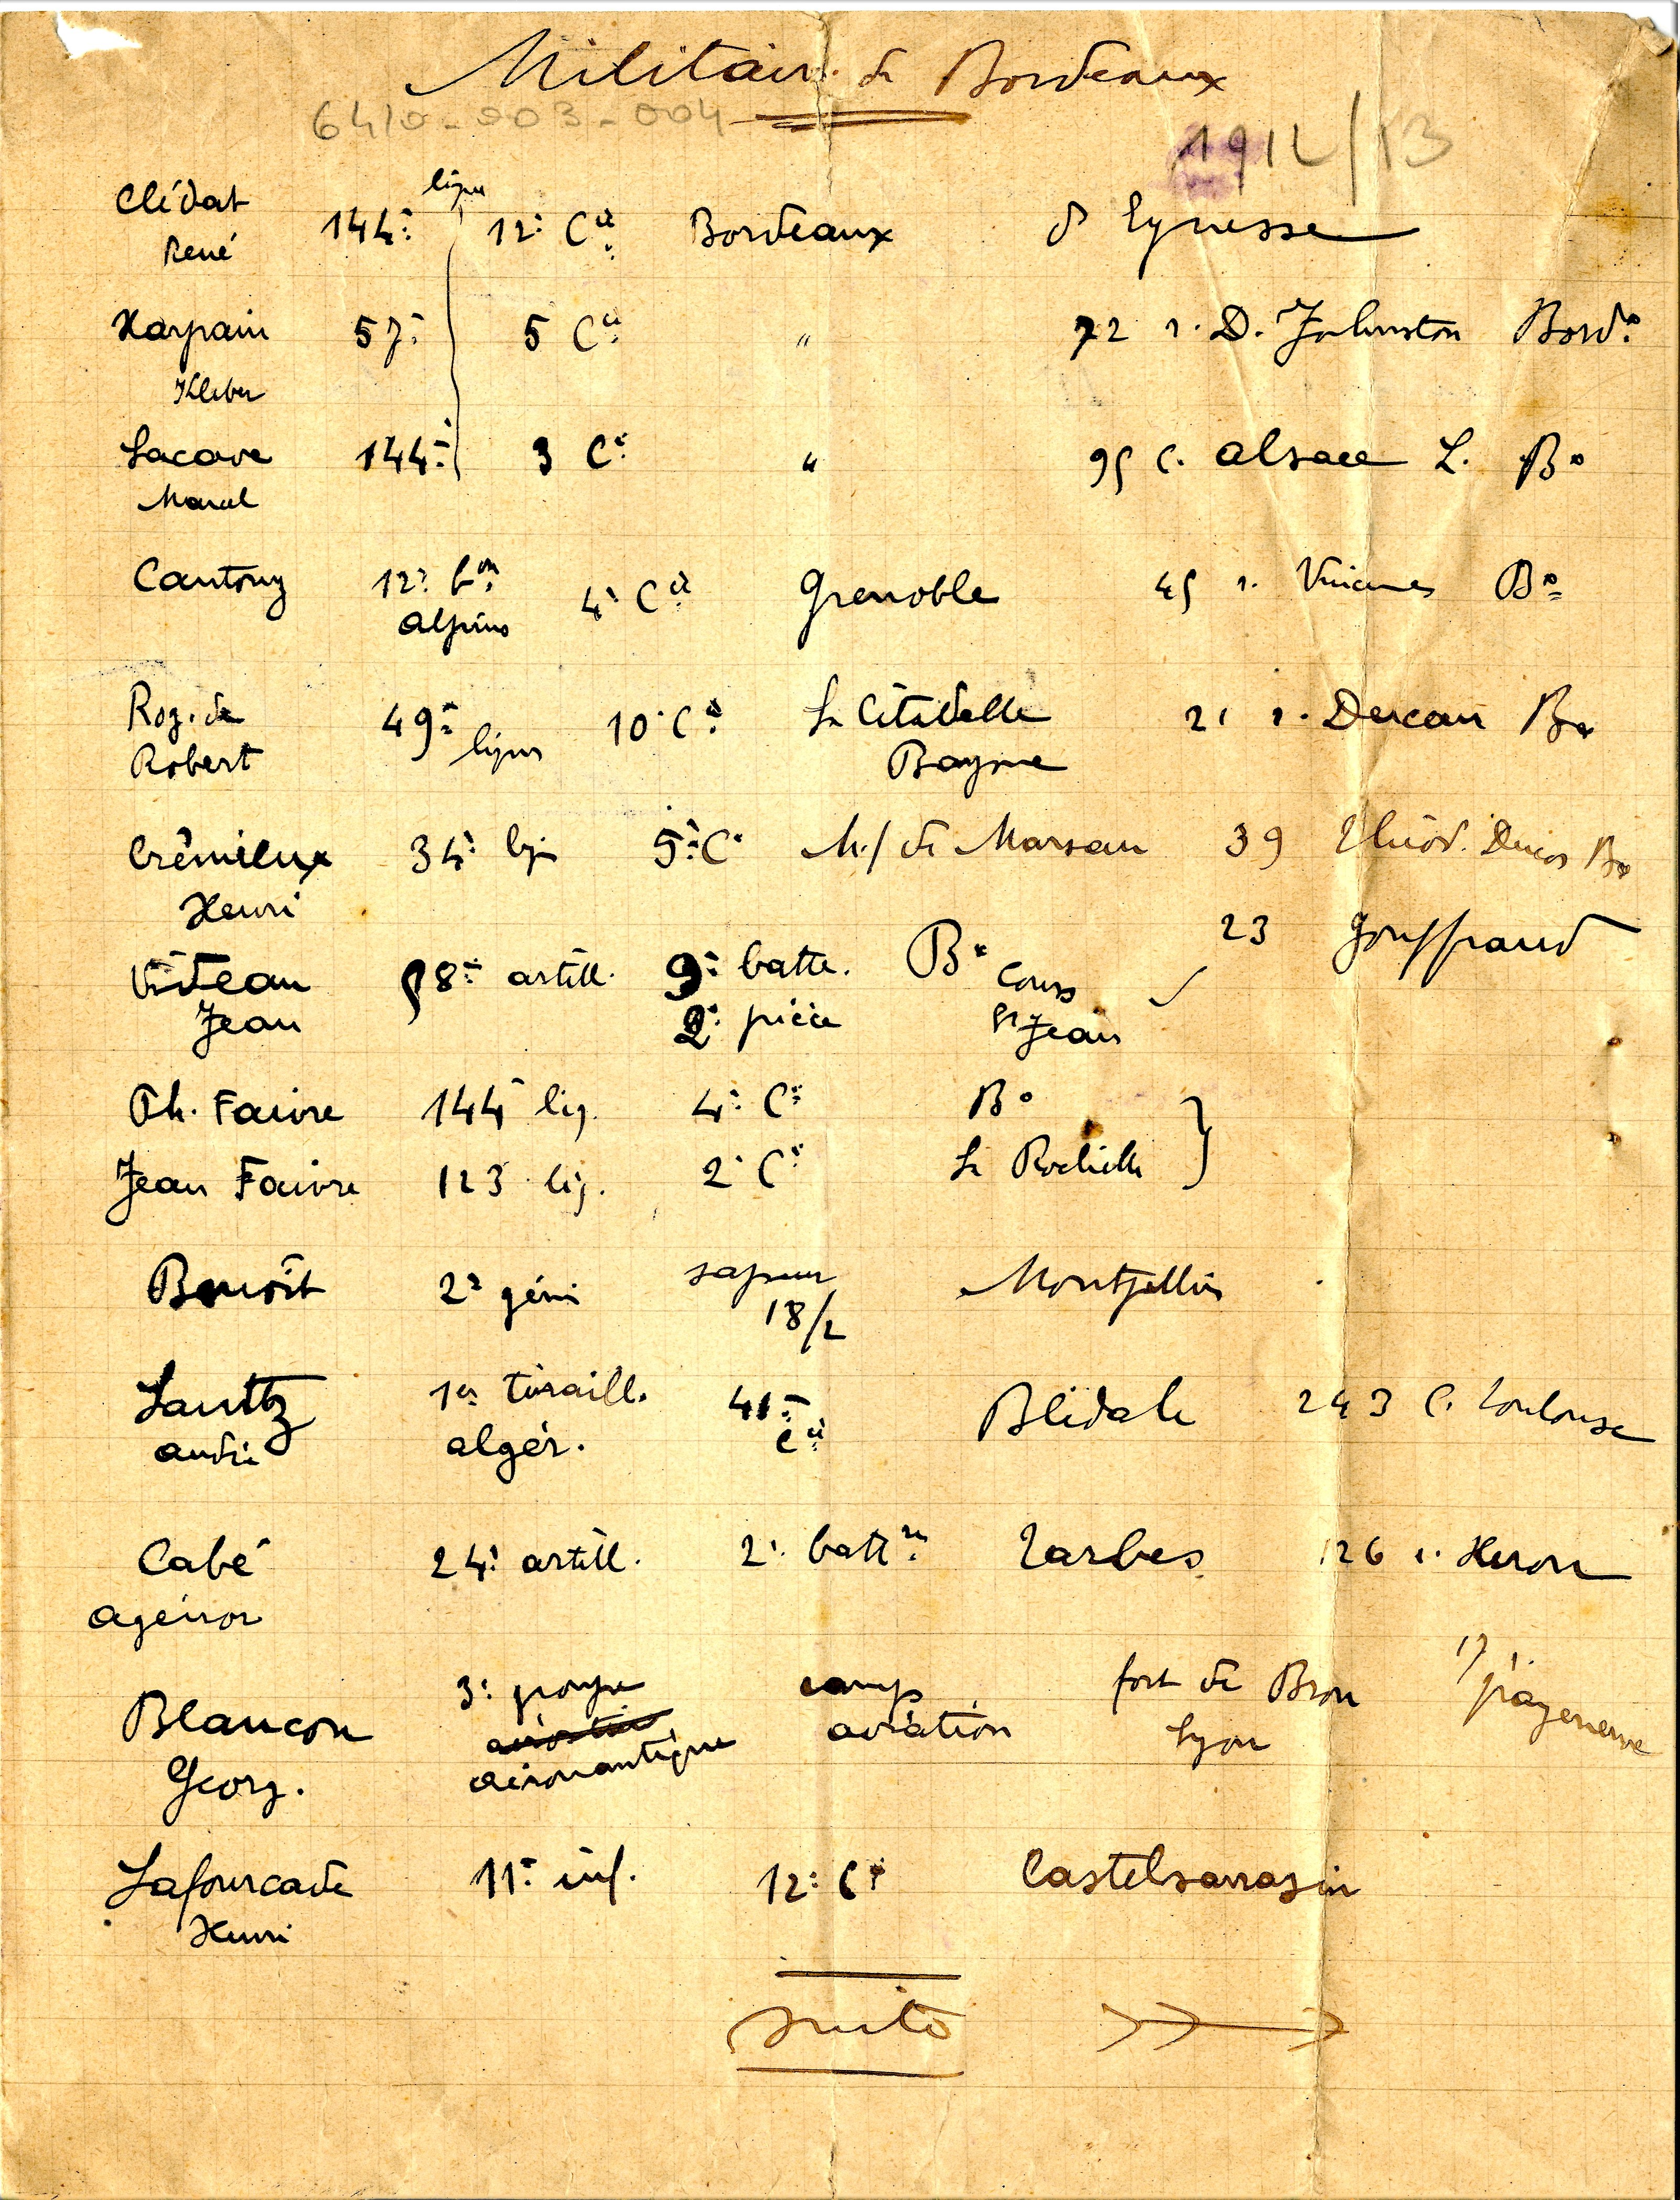 Militaires de Bordeaux
6410-003-004
1912/13
Clédat 144e ligne 12e Cie Bordeaux d'Eynesse
René
Harpain 57e 5 Cie " 72 r. D. Johnston Bordx
Kleber
Lacave 144e 3 Ce " 95 C. Alsace L. Bx
Marcel
Cantony 12e bon 4e Cie Grenoble 45 r. Bx
alpins
Roz. de 49e ligne 10e Ce La Citadelle 21 r. Bx
Robert Bayonne
Crémieux 34e lig 5e Ce Mt de Marsan 39 Théod. Ducos Bx
Henri
23 Gouffrand
Viteau 58e artill. 9e batte. Bx Cours
Jean 2e pièce St Jean
Ph. Faivre 144e lig. 4e Ce Bx
Jean Faivre 123 lig. 2e Ce La Rochelle
Benoît 2e génie sapeur Montpellier
18/2
Lanttz 1er tiraill. 41e Blidah 243 C. Toulouse
André algér. Cie
Cabé 24e artill. 2e battrie Tarbes 126 r. Heron
Agénor
Blancon 3e groupe camp fort de Bron 17
Georg. aéronautique aviation Lyon
Lafourcade 11e inf. 12e Ce Castelsarrasin
Henri
suite